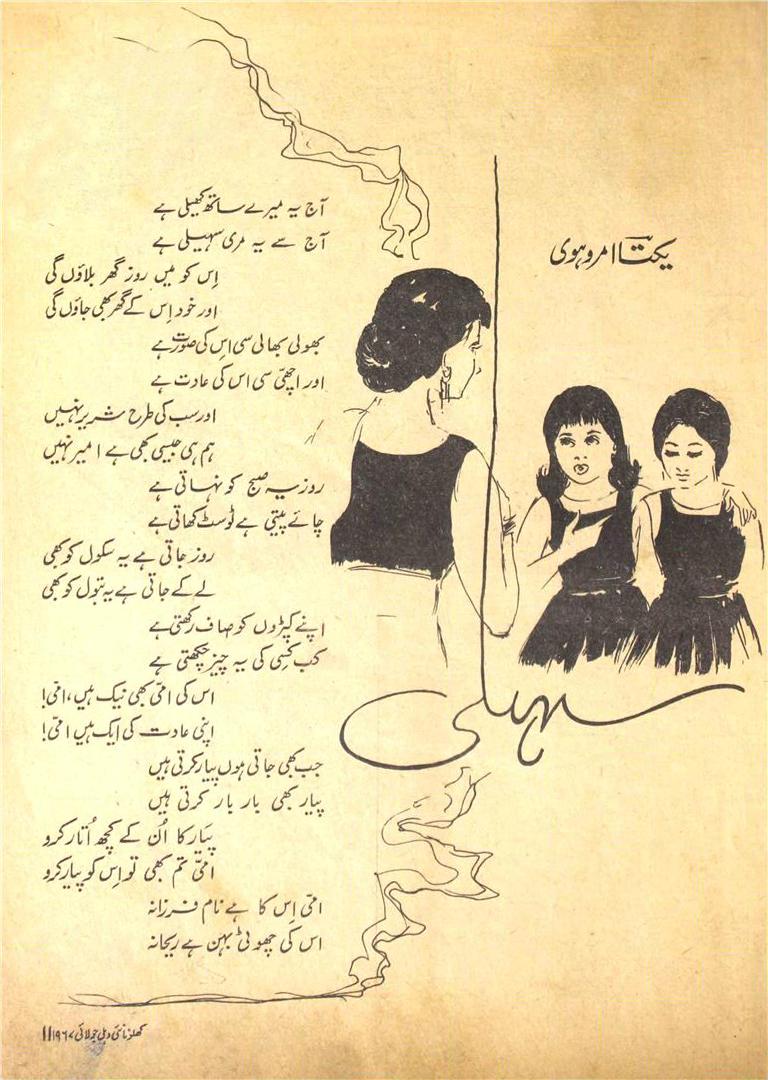 سہیلی
یکتا امروہوی
آج یہ میرے ساتھ کھیلی ہے
آج سے یہ مری سہیلی ہے
اِس کو میں روز گھر بلاؤں گی
اور خود اِس کے گھر بھی جاؤں گی
بھولی بھالی سی اس کی صورت ہے
اور اچھی سی اس کی عادت ہے
اور سب کی طرح شریر نہیں
ہم ہی جیسی بھی ہے امیر نہیں
روز یہ صبح کو نہاتی ہے
چائے پیتی ہے ٹوسٹ کھاتی ہے
روز جاتی ہے یہ سکول کو بھی
لے کے جاتی ہے یہ بتول کو بھی
اپنے کپڑوں کو صاف رکھتی ہے
کب کسی کی یہ چیز چکھتی ہے
اس کی امّی بھی نیک ہیں، امّی!
اپنی عادت کی ایک ہیں امّی!
جب بھی جاتی ہوں پیار کرتی ہیں
پیار بھی بار بار کرتی ہیں
پیار کا اُن کے کچھ اُتار کرو
امّی تم بھی تو اِس کو پیار کرو
امّی اِس کا ہے نام فرزانہ
اس کی چھوٹی بہن ہے ریحانہ
کھلونا نئی دہلی جولائی ۱۹۶۷ ۱۱